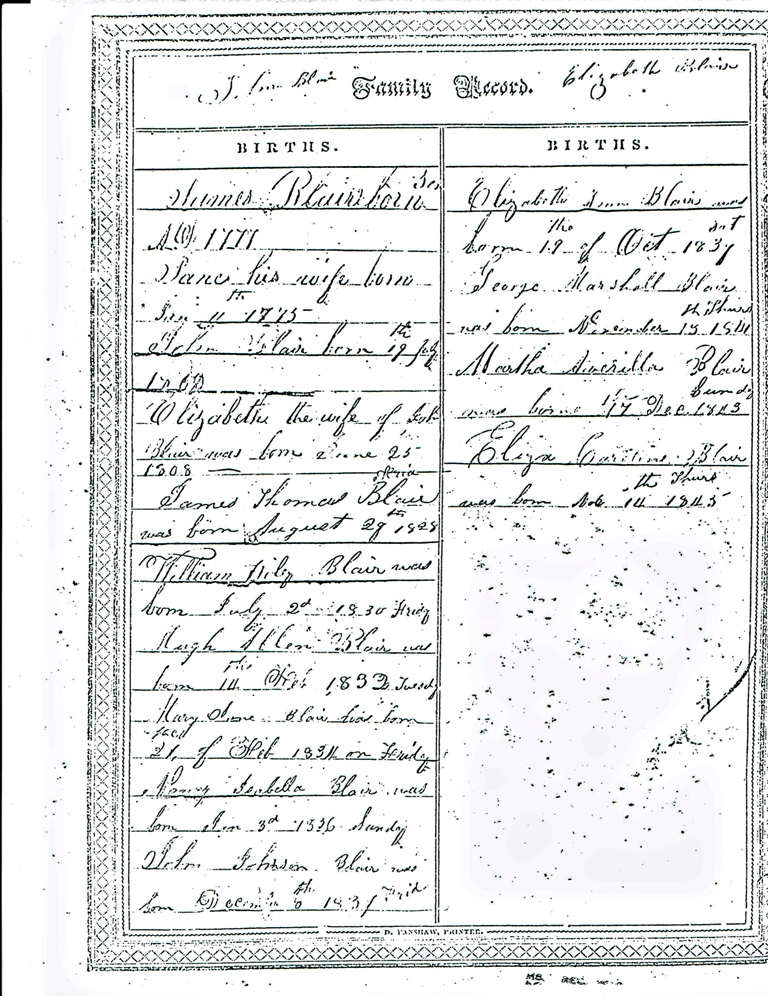 John Blair Family Record. Elizabeth Blair
BIRTHS.
James Blair born Sen
AD 1777
Jane his wife born
Jan 11th 1775
John Blair born 19th July
Elizabeth the wife of John
Blair was born June 25
1808
James Thomas Blair
was born August 29th 1828
William Blair was
born July 2d 1830 Fridy
Hugh Allen Blair was
born 14 Feb 1832 Tuesdy
Mary Blair was born
21, of Feb 1834 on Fridy
Nancy Isabella Blair was
born Jan 3d 1836 Sundy
John Johnson Blair was
born December 8th 1837 Frid
BIRTHS.
Elizabeth Ann Blair was
born 19 of Oct 1839 sat
George Marshall Blair
was born November th Thurs
Martha Averilla Blair
Sundy
was borne 17 Dec. 1843
Eliza Caroline Blair
th
was born Nov 14 1845
D. FANSHAW, PRINTER.